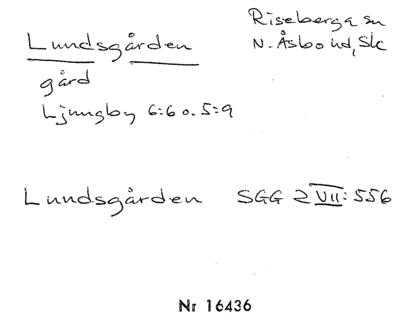 Lundsgården
Riseberga sn
N. Åsbo hd, Sk
gård
Ljungby 6:6 o. 5:9
Lundsgården SGG 2 VII: 556
Nr 16436